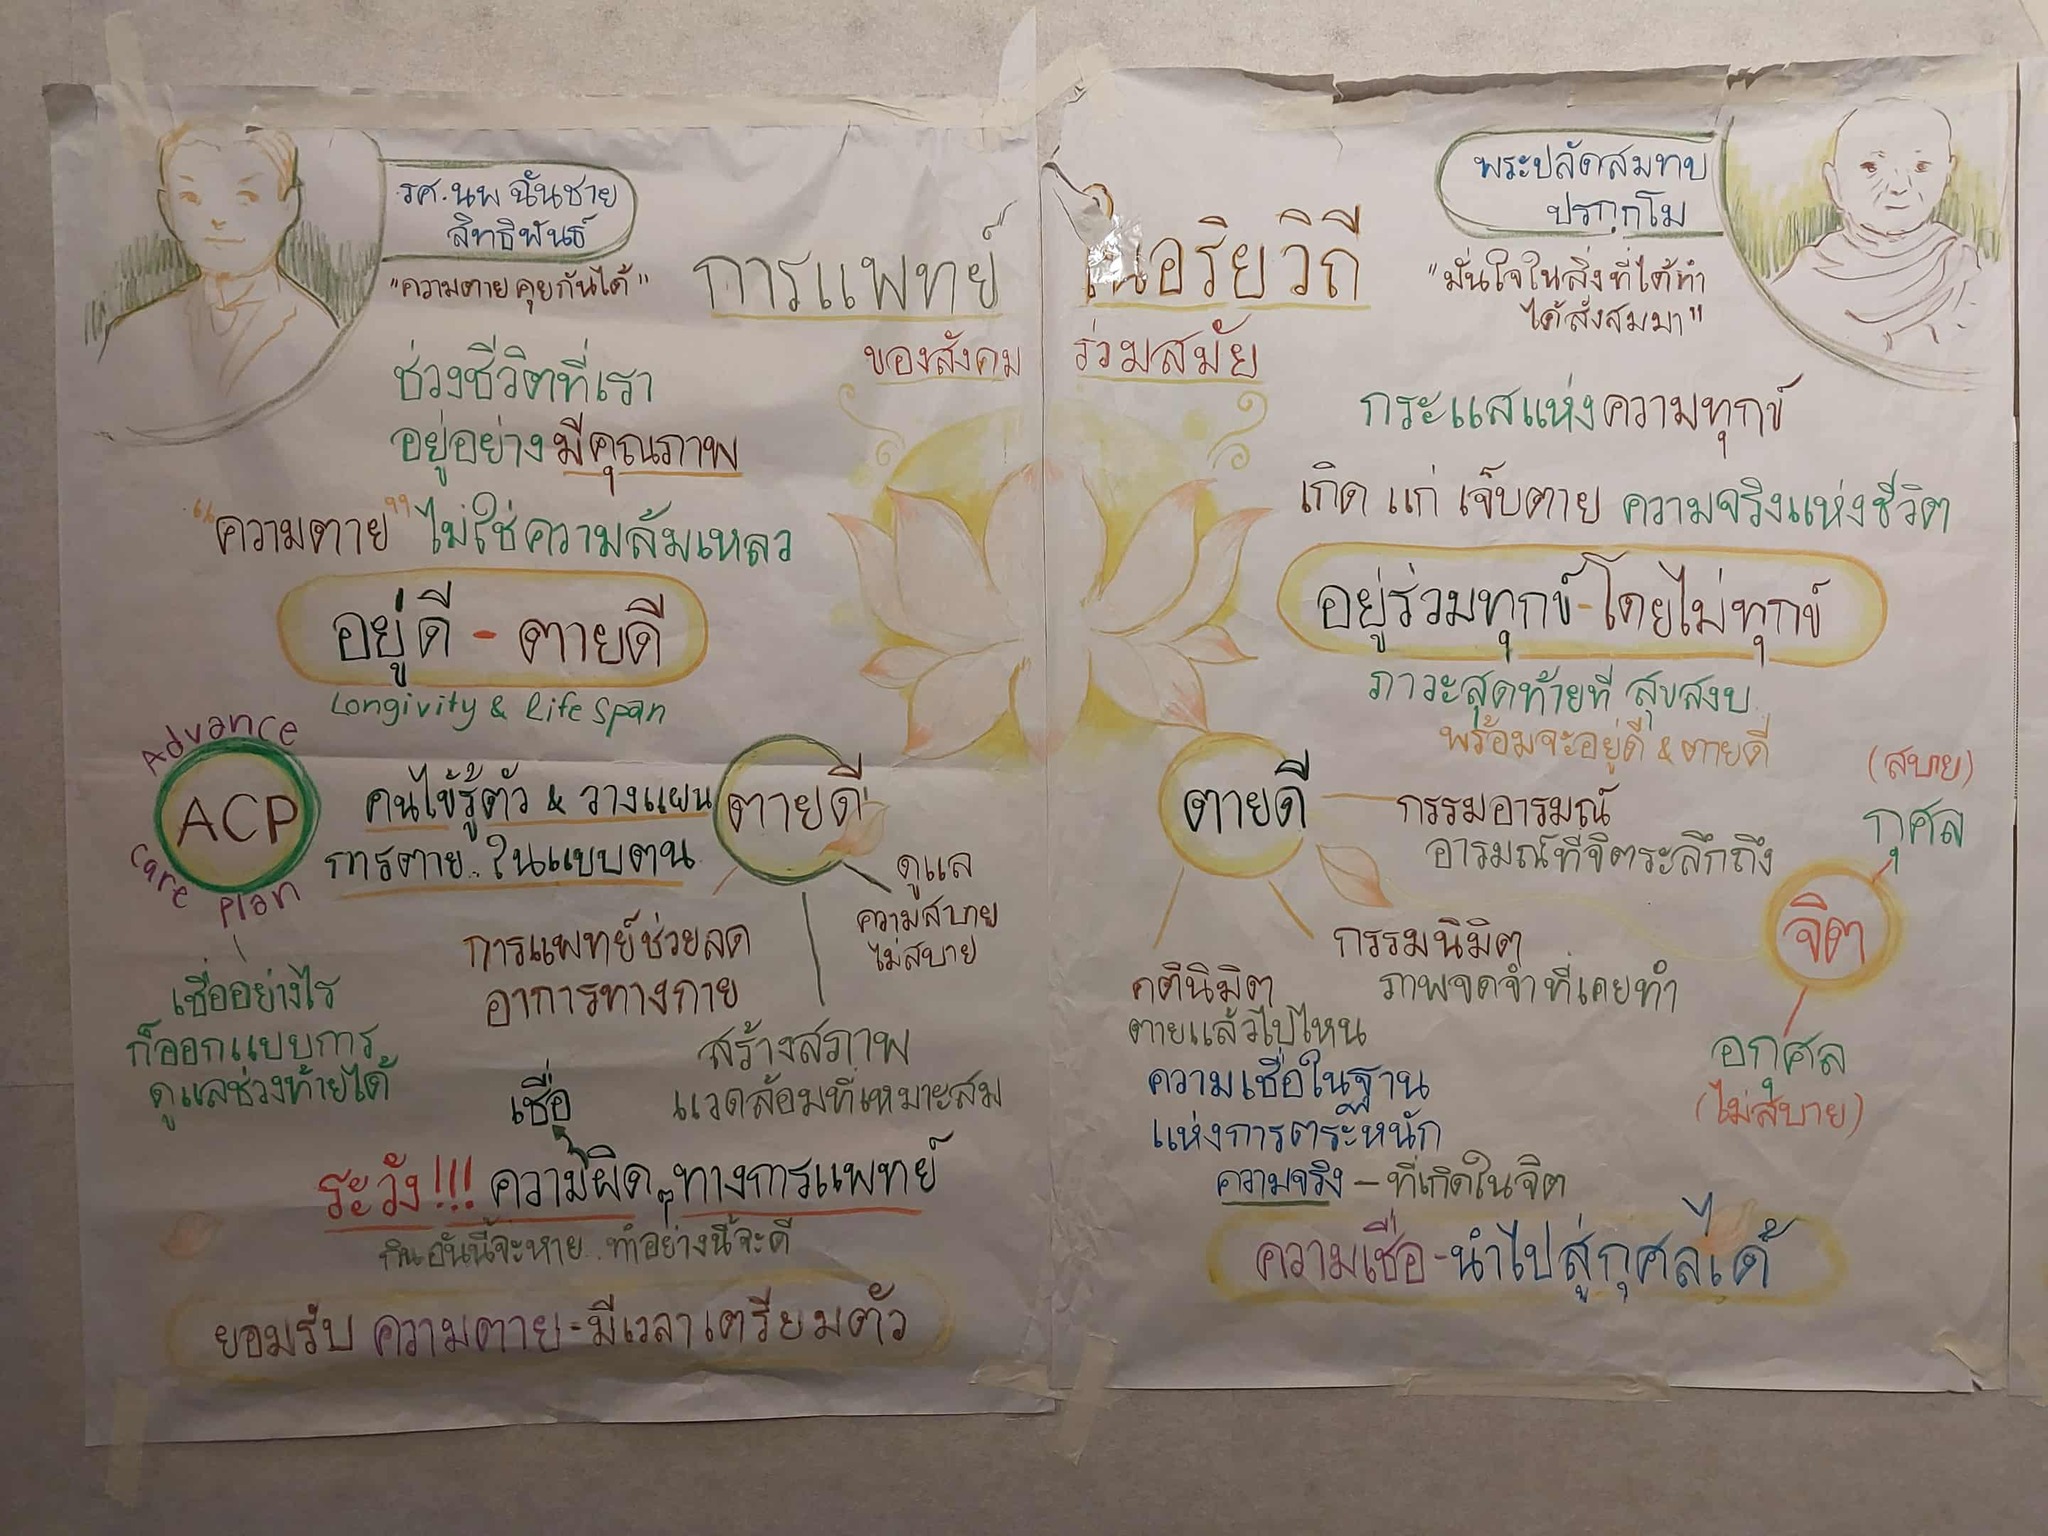 รศ.นพ ฉันชาย
สิทธิพันธ์
"ความตายคุยกันได้"
การแพทย์ในอริยวิถี
ของสังคมร่วมสมัย
ช่วงชีวิตที่เรา
อยู่อย่างมีคุณภาพ
"ความตาย" ไม่ใช่ความล้มเหลว
อยู่ดี - ตายดี
Longivity & Life Span
Advance
ACP
Care Plan
คนไข้รู้ตัว & วางแผน
การตาย.. ในแบบตน
ตายดี
ดูแล
ความสบาย
ไม่สบาย
การแพทย์ช่วยลด
อาการทางกาย
สร้างสภาพ
แวดล้อมที่เหมาะสม
เชื่ออย่างไร
ก็ออกแบบการ
ดูแลช่วงท้ายได้
เชื่อ
ระวัง!!! ความผิดๆทางการแพทย์
กินอันนี้จะหาย.. ทำอย่างนี้จะดี
ยอมรับ ความตาย - มีเวลาเตรียมตัว
พระปลัดสมทบ
ปรกฺกโม
"มั่นใจในสิ่งที่ได้ทำ
ได้สั่งสมมา"
กระแสแห่งความทุกข์
เกิด แก่ เจ็บตาย ความจริงแห่งชีวิต
อยู่ร่วมทุกข์-โดยไม่ทุกข์
ภาวะสุดท้ายที่ สุขสงบ
พร้อมจะอยู่ดี & ตายดี
ตายดี
กรรมอารมณ์
อารมณ์ที่จิตระลึกถึง
กรรมนิมิต
ภาพจดจำที่เคยทำ
คตินิมิต
ตายแล้วไปไหน
(สบาย)
กุศล
จิต
อกุศล
(ไม่สบาย)
ความเชื่อในฐาน
แห่งการตระหนัก
ความจริง - ที่เกิดในจิต
ความเชื่อ-นำไปสู่กุศลได้